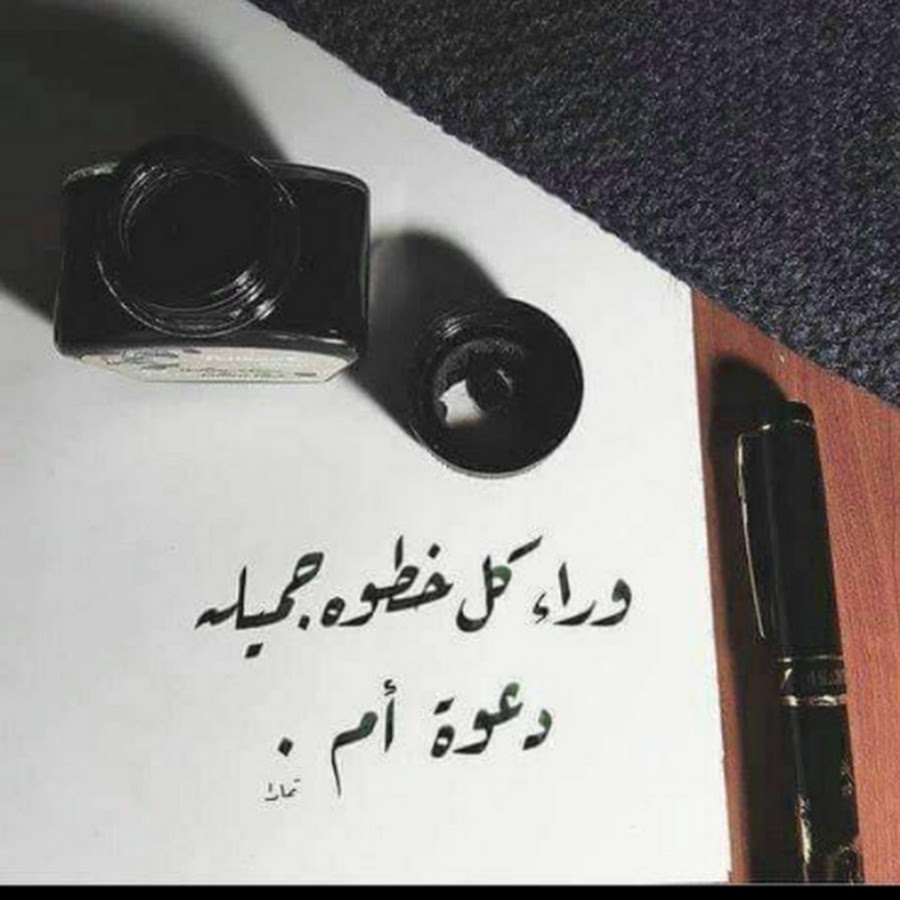 وراء كل خطوه جميله
دعوة أم .